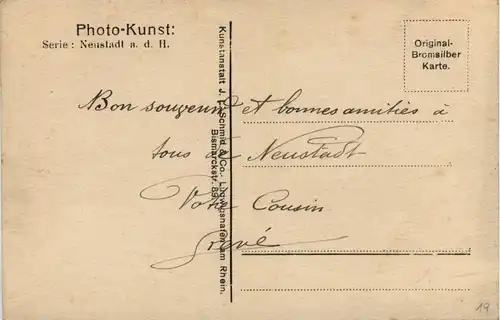 Photo-Kunst:
Serie: Neustadt a. d. H.
Original-
Bromsilber
Karte.
Kunstanstalt J. Schmid & Co., Ludwigshafen am Rhein.
Bismarckstr.
Bon souvenir et bonnes amitiés à
tous de Neustadt
Votre Cousin
19